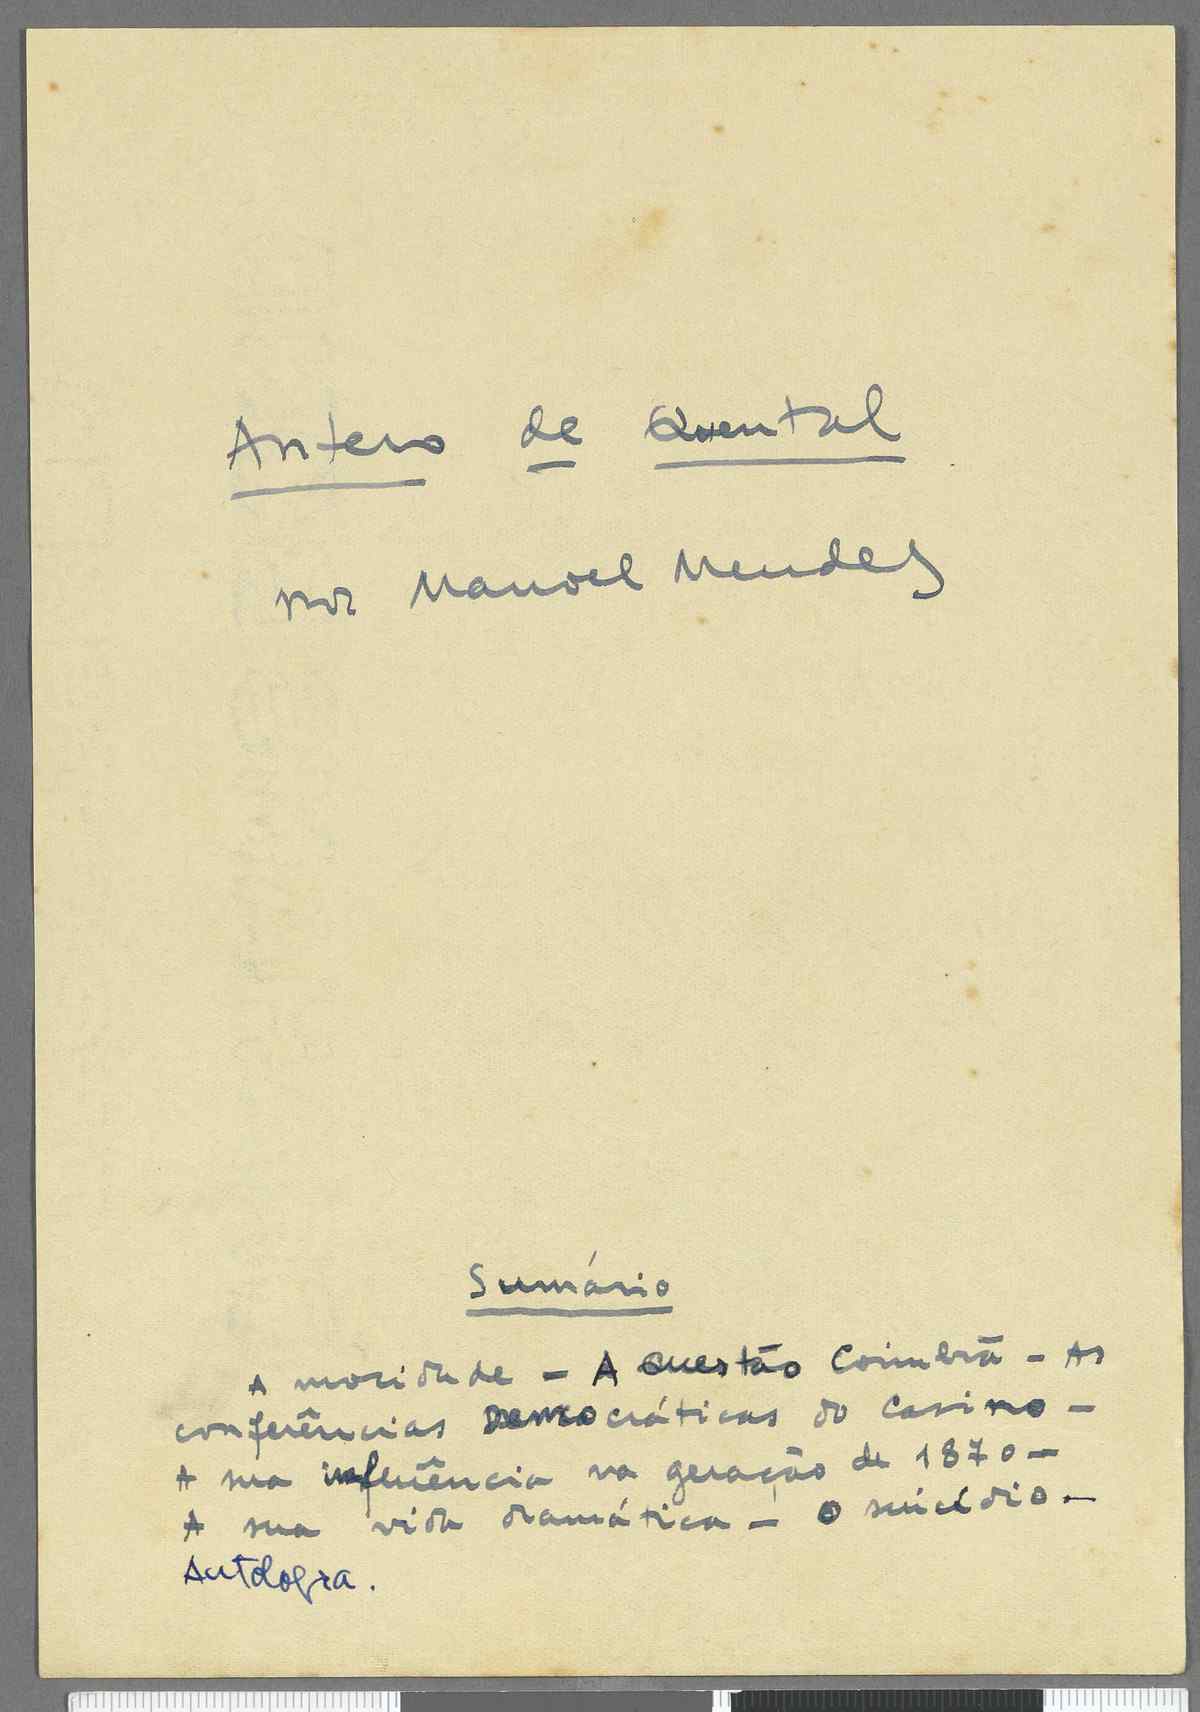 Antero de Quental
por Manoel Mendes
Sumário
A mocidade – A Questão Coimbrã – As
conferências Democráticas do Casino –
A sua influência na geração de 1870 –
A sua vida dramática – O suicídio –
Antologia.